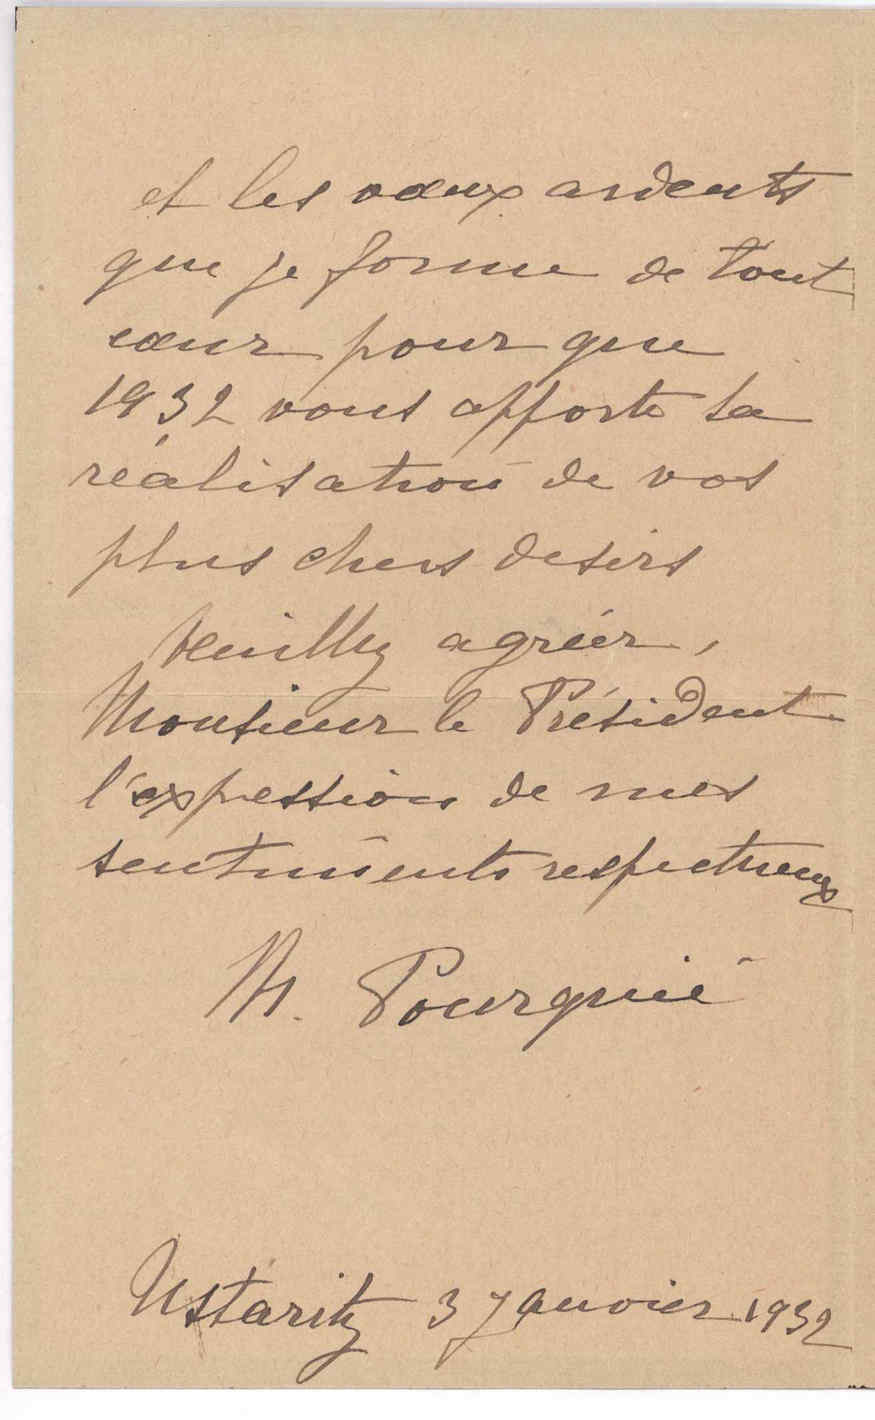 et les vœux ardents
que je forme de tout
cœur pour que
1932 vous apporte la
réalisation de vos
plus chers desirs
Veuillez agréer,
Monsieur le Président
l'expression de mes
sentiments respectueux
M. Pourquié
Ustaritz 3 janvier 1932